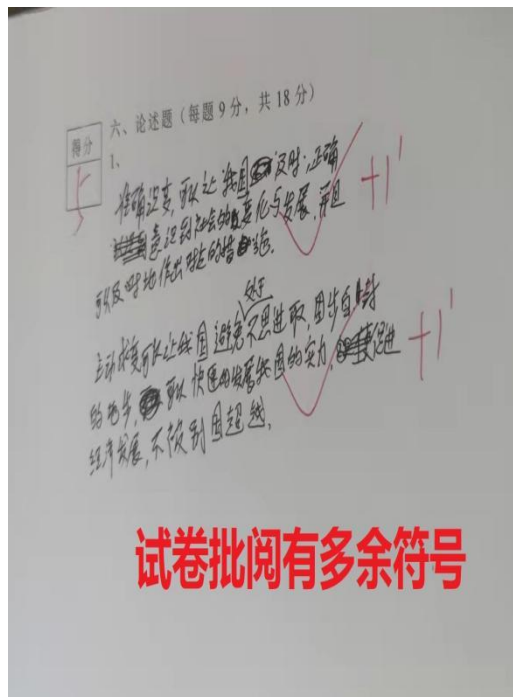 六、论述题(每题9分,共18分)
得分
5
1、
准确识变,可以让我国及时,正确 +1'
意识到社会的变化与发展,并且
可以及时地作出对应的措施。
处于
主动求变可以让我国避免不思进取,固步自封
的地步,可以快速的发展我国的实力,促进 +1'
经济发展,不被别国超越,
试卷批阅有多余符号